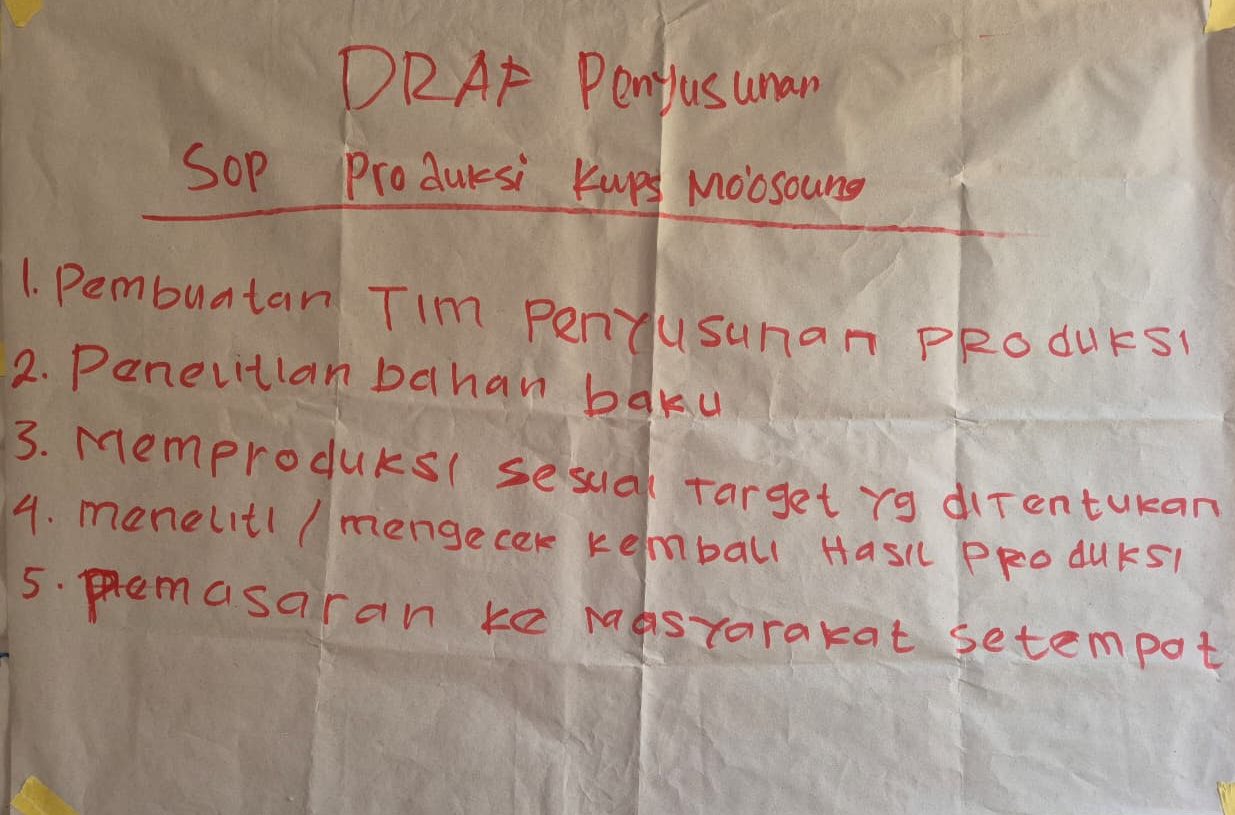 DRAF Penyusunan
SOP Produksi Kups Mo'osoung
1. Pembuatan TIM PENYUSUNAN PRODUKSI
2. Penelitian bahan baku
3. Memproduksi sesuai Target Yg diTentukan
4. meneliti / mengecek kembali HASIL PRODUKSI
5. Pemasaran ke Masyarakat setempat